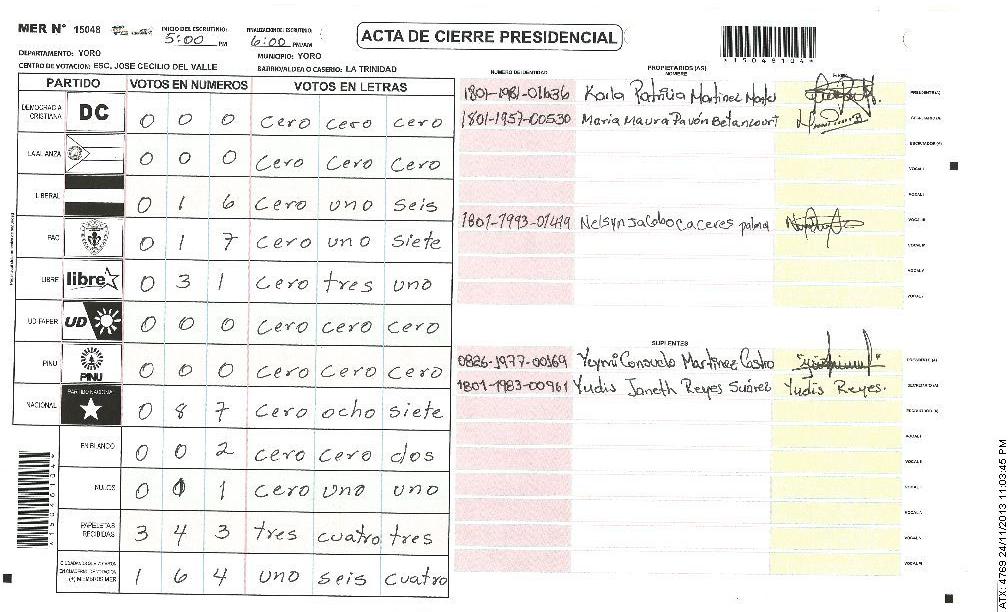 MER N° 15048 INICIO DEL ESCRUTINIO: 5:00 PM FINALIZACION ESCRUTINIO: 6:00 PM/AM
ACTA DE CIERRE PRESIDENCIAL
*15048104*
DEPARTAMENTO: YORO MUNICIPIO: YORO
CENTRO DE VOTACION: ESC, JOSE CECILIO DEL VALLE BARRIO/ALDEA O CASERIO: LA TRINIDAD
PARTIDO VOTOS EN NUMEROS VOTOS EN LETRAS
DEMOCRACIA CRISTIANA DC 0 0 0 Cero Cero Cero
LA ALIANZA 0 0 0 Cero Cero Cero
LIBERAL 0 1 6 Cero uno Seis
PAC 0 1 7 Cero uno Siete
LIBRE libre 0 3 1 Cero tres uno
UD FAPER UD 0 0 0 Cero Cero Cero
PINU PINU 0 0 0 Cero Cero Cero
NACIONAL PARTIDO NACIONAL 0 8 7 Cero ocho Siete
EN BLANCO 0 0 2 Cero Cero dos
NULOS 0 1 1 Cero uno uno
PAPELETAS RECIBIDAS 3 4 3 tres cuatro tres
(+) MIEMBROS MER 1 6 4 uno seis cuatro
NUMERO DE IDENTIDAD PROPIETARIOS (AS) NOMBRE FIRMA
1801-1981-01636 Karla Patricia Martinez PRESIDENTE (A)
1801-1957-00530 Maria Maura Pavón Betancourt SECRETARIO (A)
ESCRUTADOR (A)
VOCAL I
VOCAL II
1801-1993-01499 Nelsyn Jacobo Caceres palma VOCAL III
VOCAL IV
VOCAL V
SUPLENTES
0826-1977-00169 Yeymi Consuelo Martinez Castro PRESIDENTE (A)
1801-1983-00961 Yudis Janeth Reyes Suárez Yudis Reyes. SECRETARIO (A)
ESCRUTADOR (A)
VOCAL I
VOCAL II
ATX: 4769 24/11/2013 11:03:45 PM